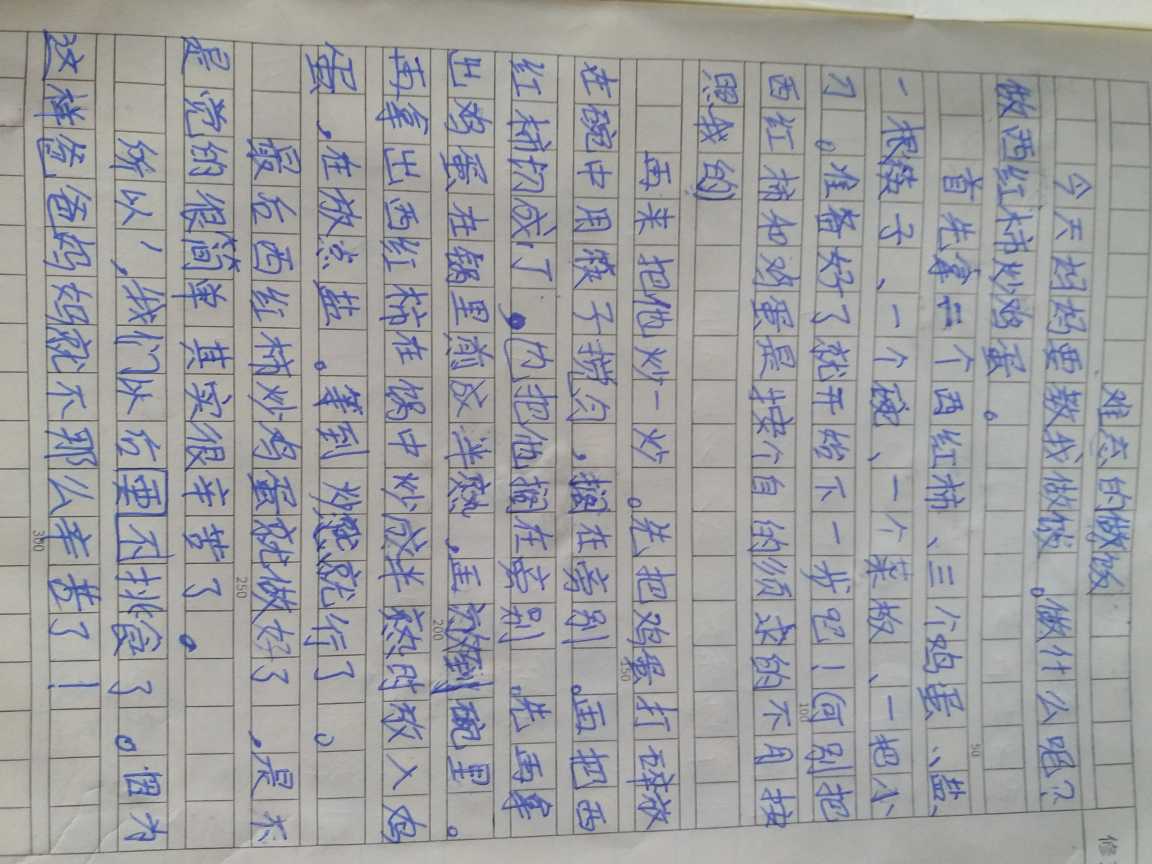 难忘的做饭
今天妈妈要教我做饭。做什么呢?
做西红柿炒鸡蛋。
首先拿二个西红柿、三个鸡蛋、盐、
一根筷子、一个碗、一个菜板、一把小
刀。准备好了就开始下一步吧!何别把
西红柿和鸡蛋是按个自的须求的不月按
照我的
再来把他炒一炒。先把鸡蛋打碎放
在碗中用筷子搅匀,搁在旁别。再把西
红柿切成了,也把他搁在旁别。先再拿
出鸡蛋在锅里煎放半熟,再倒碗里。
再拿出西红柿在锅中炒成半熟时放入鸡
蛋,在放点盐。等到炒熟就行了。
最后西红柿炒鸡蛋就做好了,是不
是觉的很简单其实很辛苦了。
所以,我们从后要不挑食了。因为
这样爸爸妈妈就不那么辛苦了!
50
100
150
200
250
300
修